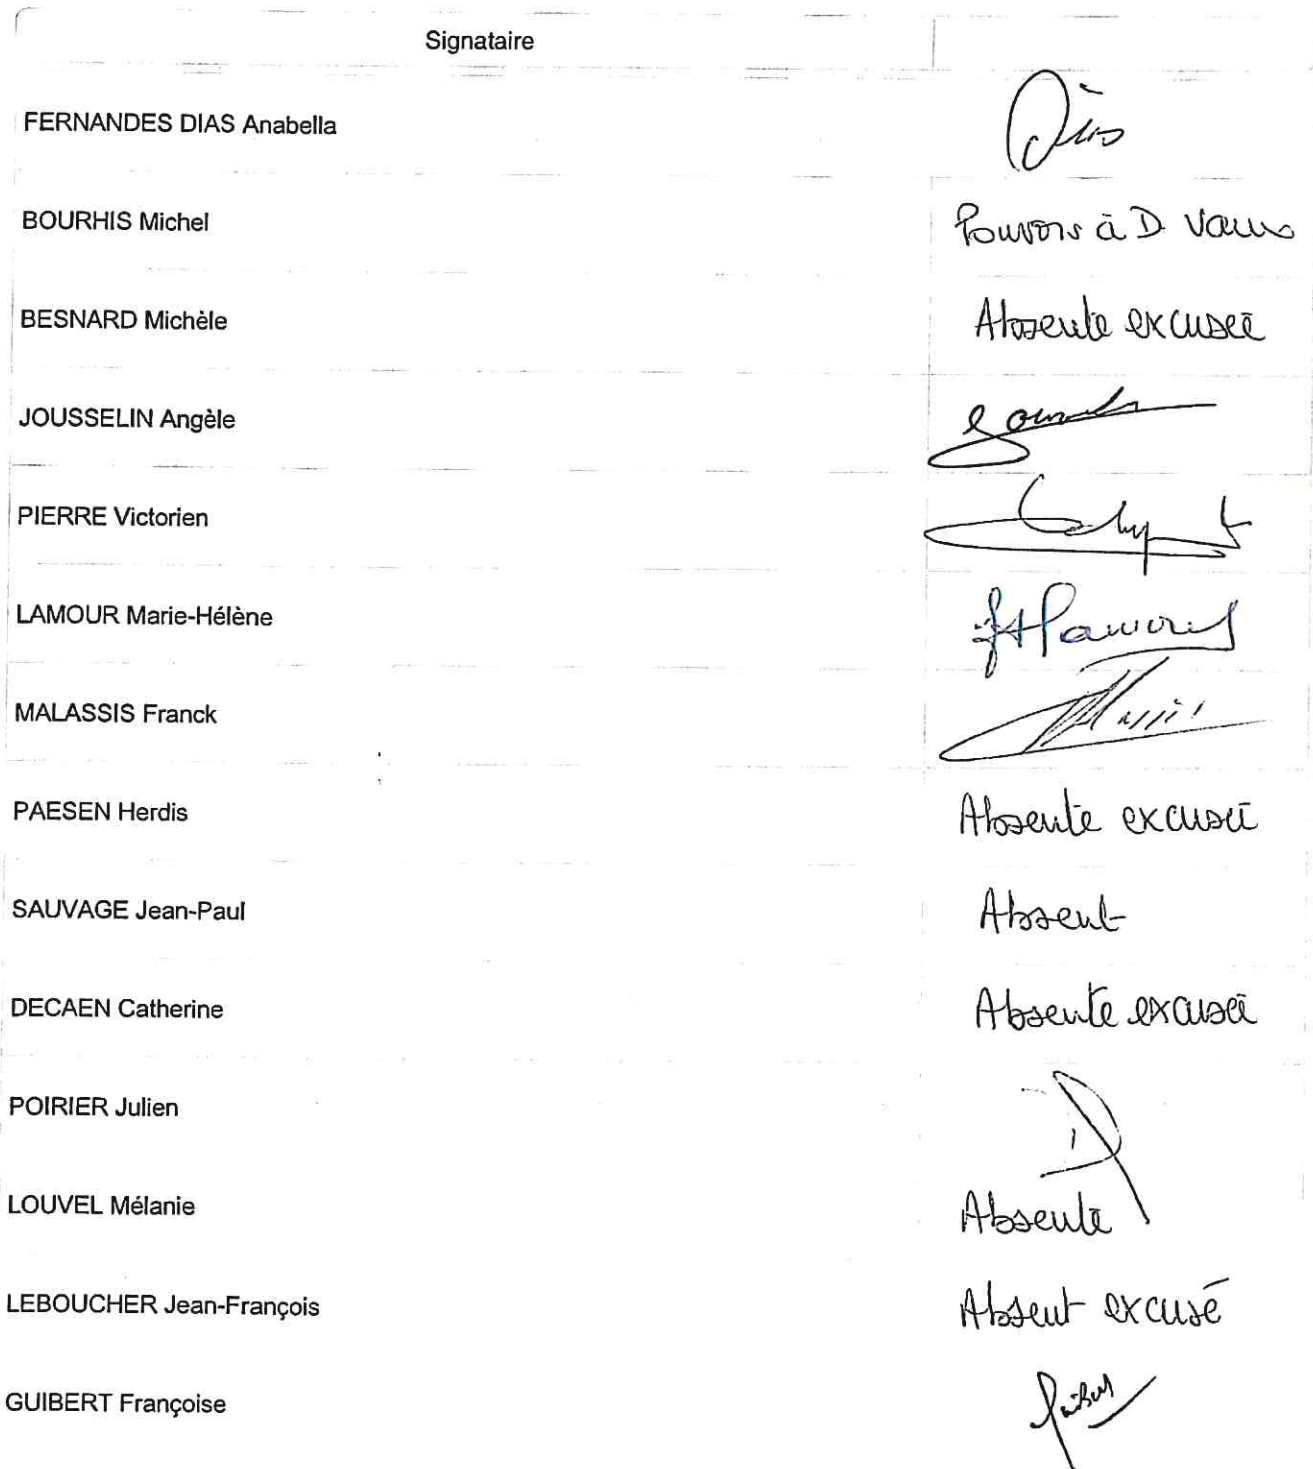 Signataire
FERNANDES DIAS Anabella
BOURHIS Michel Pouvoir à D
BESNARD Michèle Absente excusée
JOUSSELIN Angèle
PIERRE Victorien
LAMOUR Marie-Hélène
MALASSIS Franck
PAESEN Herdis Absente excusée
SAUVAGE Jean-Paul Absent
DECAEN Catherine Absente excusée
POIRIER Julien
LOUVEL Mélanie Absente
LEBOUCHER Jean-François Absent excusé
GUIBERT Françoise